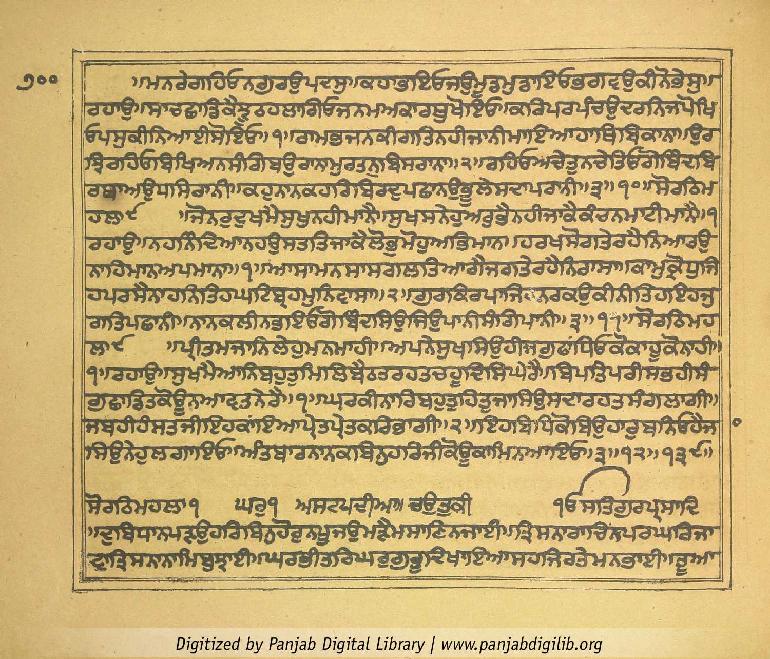 ੭੦੦
॥ਮਨਰੇਗਹਿਓਨਗੁਰਉਪਦੇਸੁ॥ਕਹਾਭਇਓਜਉਮੂਡੁਮੁਡਾਇਓਭਗਵਉਕੀਨੋਭੇਸੁ॥
ਰਹਾਉ॥ਸਾਚਛਾਡਿਕੈਝੂਠਹਲਾਗਿਓਜਨਮੁਅਕਾਰਥੁਖੋਇਓ॥ਕਰਿਪਰਪੰਚਉਦਰਨਿਜਪੋਖਿ
ਓਪਸੁਕੀਨਿਆਈਸੋਇਓ॥੧॥ਰਾਮਭਜਨਕੀਗਤਿਨਹੀਜਾਨੀਮਾਇਆਹਾਥਿਬਿਕਾਨਾ॥ਉਰ
ਝਿਰਹਿਓਬਿਖਿਅਨਸੰਗਿਬਉਰਾਨਾਮੁਰਤਨੁਬਿਸਰਾਨਾ॥੨॥ਰਹਿਓਅਚੇਤੁਨਚੇਤਿਓਗੋਬਿੰਦਬਿ
ਰਥਾਅਉਧਸਿਰਾਨੀ॥ਕਹੁਨਾਨਕਹਰਿਬਿਰਦੁਪਛਾਨਉਭੂਲੇਸਦਾਪਰਾਨੀ॥੩॥੧੦॥ਸੋਰਠਿਮ
ਹਲਾ੯ ॥ਜੋਨਰੁਦੁਖਮੈਦੁਖੁਨਹੀਮਾਨੈ॥ਸੁਖਸਨੇਹੁਅਰੁਭੈਨਹੀਜਾਕੈਕੰਚਨਮਾਟੀਮਾਨੈ॥੧
ਰਹਾਉ॥ਨਹਨਿੰਦਿਆਨਹਉਸਤਤਿਜਾਕੈਲੋਭੁਮੋਹੁਅਭਿਮਾਨਾ॥ਹਰਖਸੋਗਤੇਰਹੈਨਿਆਰਉ
ਨਾਹਿਮਾਨਅਪਮਾਨਾ॥੧॥ਆਸਾਮਨਸਾਸਗਲਤਿਆਗੈਜਗਤੇਰਹੈਨਿਰਾਸਾ॥ਕਾਮੁਕ੍ਰੋਧੁਜਿ
ਹਪਰਸੈਨਾਹਨਿਤਿਹਘਟਿਬ੍ਰਹਮੁਨਿਵਾਸਾ॥੨॥ਗੁਰਕਿਰਪਾਜਿਹਨਰਕਉਕੀਨੀਤਿਹਇਹਜੁ
ਗਤਿਪਛਾਨੀ॥ਨਾਨਕਲੀਨਭਇਓਗੋਬਿੰਦਸਿਉਜਿਉਪਾਨੀਸੰਗਿਪਾਨੀ॥੩॥੧੧॥ਸੋਰਠਿਮਹ
ਲਾ੯ ॥ਪ੍ਰੀਤਮਜਾਨਿਲੇਹੁਮਨਮਾਹੀ॥ਅਪਨੇਸੁਖਸਿਉਹੀਜਗੁਫਾਂਧਿਓਕੋਕਾਹੂਕੋਨਾਹੀ॥
੧॥ਰਹਾਉ॥ਸੁਖਮੈਆਨਿਬਹੁਤੁਮਿਲਿਬੈਠਤਰਹਤਚਹੂਦਿਸਿਘੇਰੈ॥ਬਿਪਤਿਪਰੀਸਭਹੀਸੰ
ਗੁਛਾਡਿਤਕੋਊਨਆਵਤਨੇਰੈ॥੧॥ਘਰਕੀਨਾਰਿਬਹੁਤੁਹਿਤੁਜਾਸਿਉਸਦਾਰਹਤਸੰਗਲਾਗੀ॥
ਜਬਹੀਹੰਸਤਜੀਇਹਕਾਂਇਆਪ੍ਰੇਤਪ੍ਰੇਤਕਰਿਭਾਗੀ॥੨॥ਇਹਬਿਧਿਕੋਬਿਉਹਾਰੁਬਨਿਓਹੈਜ
ਸਿਉਨੇਹੁਲਗਾਇਓ॥ਅੰਤਿਬਾਰਨਾਨਕਬਿਨੁਹਰਿਜੀਕੋਊਕਾਮਿਨਆਇਓ॥੩॥੧੨॥੧੩੯॥
ਸੋਰਠਿਮਹਲਾ੧ ਘਰੁ੧ ਅਸਟਪਦੀਆ ਚਉਤੁਕੀ ੴਸਤਿਗੁਰਪ੍ਰਸਾਦਿ
॥ਦੁਬਿਧਾਨਪੜਉਹਰਿਬਿਨੁਹੋਰੁਨਪੂਜਉਮੜੈਮਸਾਣਿਨਜਾਈ॥ਤ੍ਰਿਸਨਾਰਾਚਿਨਪਰਘਰਿਜਾ
ਵਾਤ੍ਰਿਸਨਾਨਾਮਿਬੁਝਾਈ॥ਘਰਭੀਤਰਿਘਰੁਗੁਰੂਦਿਖਾਇਆਸਹਜਿਰਤੇਮਨਭਾਈ॥ਤੂਆ
Digitized by Panjab Digital Library | www.panjabdigilib.org